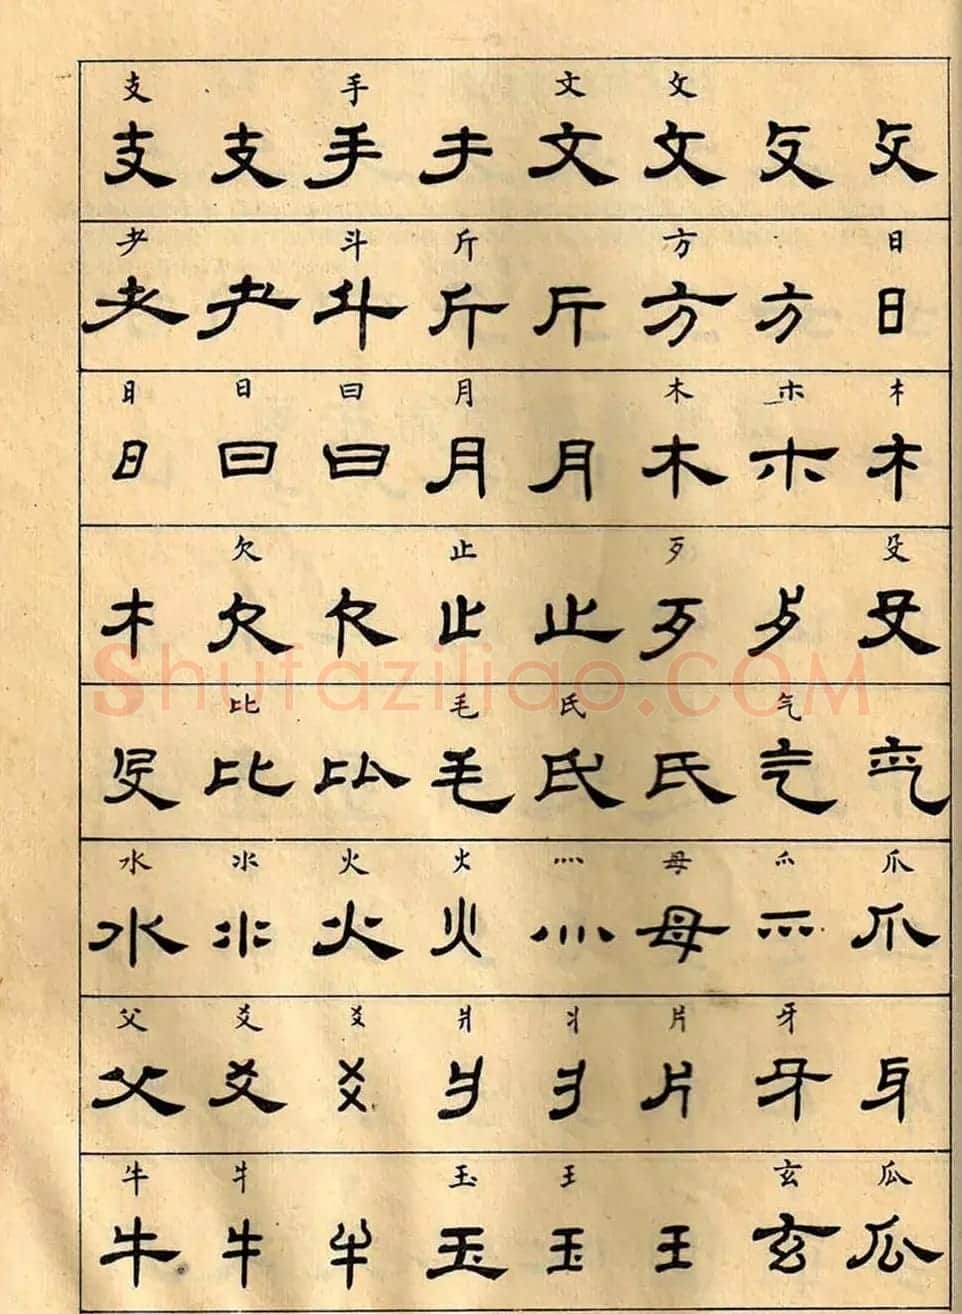 支 手 文 攵
支 支 手 手 文 攵 攵 攵
耂 斗 斤 方 日
耂 耂 斗 斤 斤 方 方 日
日 日 曰 月 木 朩 木
日 曰 曰 月 月 木 朩 木
欠 止 歹 殳
木 欠 欠 止 止 歹 歹 殳
Shufaziliao.COM
比 毛 氏 气
殳 比 比 毛 氏 氏 气 气
水 氺 火 火 灬 母 爫 爪
水 氺 火 火 灬 母 爫 爪
父 爻 㸚 爿 丬 片 牙
父 爻 㸚 爿 丬 片 牙 牙
牛 牜 玉 王 玄 瓜
牛 牜 牛 玉 玉 王 玄 瓜